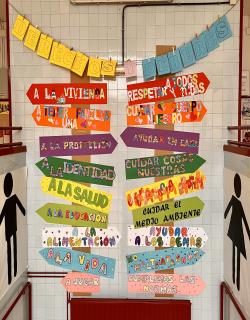 DERECHOS
DEBERES
A LA VIVIENDA
A TENER FAMILIA
UNA
A LA PROTECCIÓN
A LA IDENTIDAD
A LA SALUD
A LA EDUCACIÓN
A LA
ALIMENTACIÓN
A LA VIDA
A JUGAR
A TODOS
RESPETAR
CUIDAR CUERPO
AYUDAR EN CASA
CUIDAR COSAS
NUESTRAS
CUIDAR EL
MEDIO AMBIENTE
AYUDAR
A LOS DEMÁS
CUMPLIR LAS
NORMAS